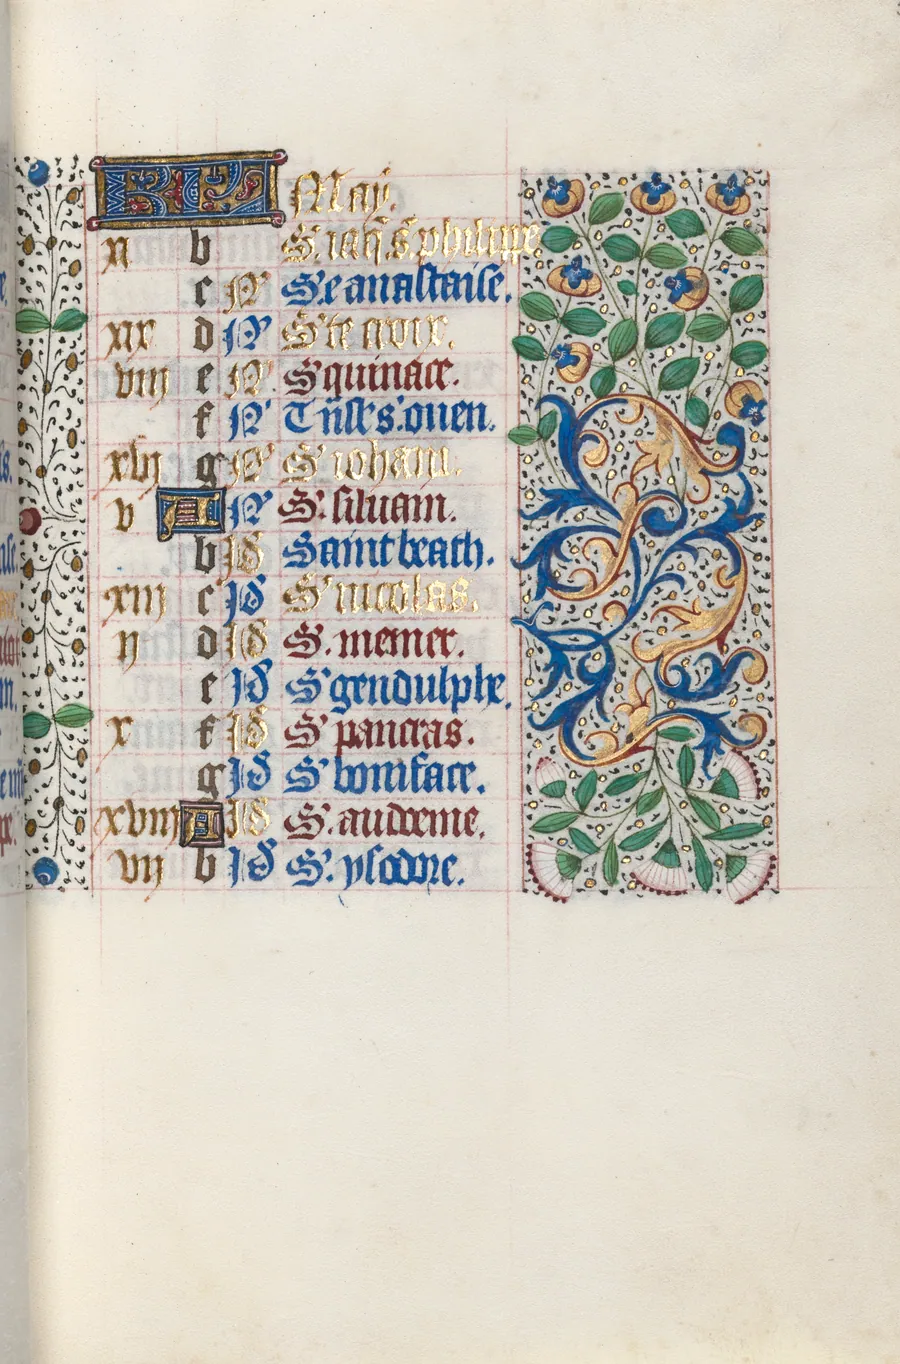 KL May.
xi b S. iaq̃. s. philippe
c N̾ S'e anastaise.
xix d N̾ S'te croix.
viij e N̾ S' quiriace.
f N̾ Tñsl' s. ouen.
xvj g N̾ S' iohann.
v A N̾ S. siluain.
b Id̾ Saint beath.
xiij c Id̾ S' nicolas.
ij d Id̾ S. memer.
e Id̾ S' gendulphe.
x f Id̾ S' pancras.
g Id̾ S' boniface.
xviij A Id̾ S. audoeme.
vij b Id̾ S'. ysodore.